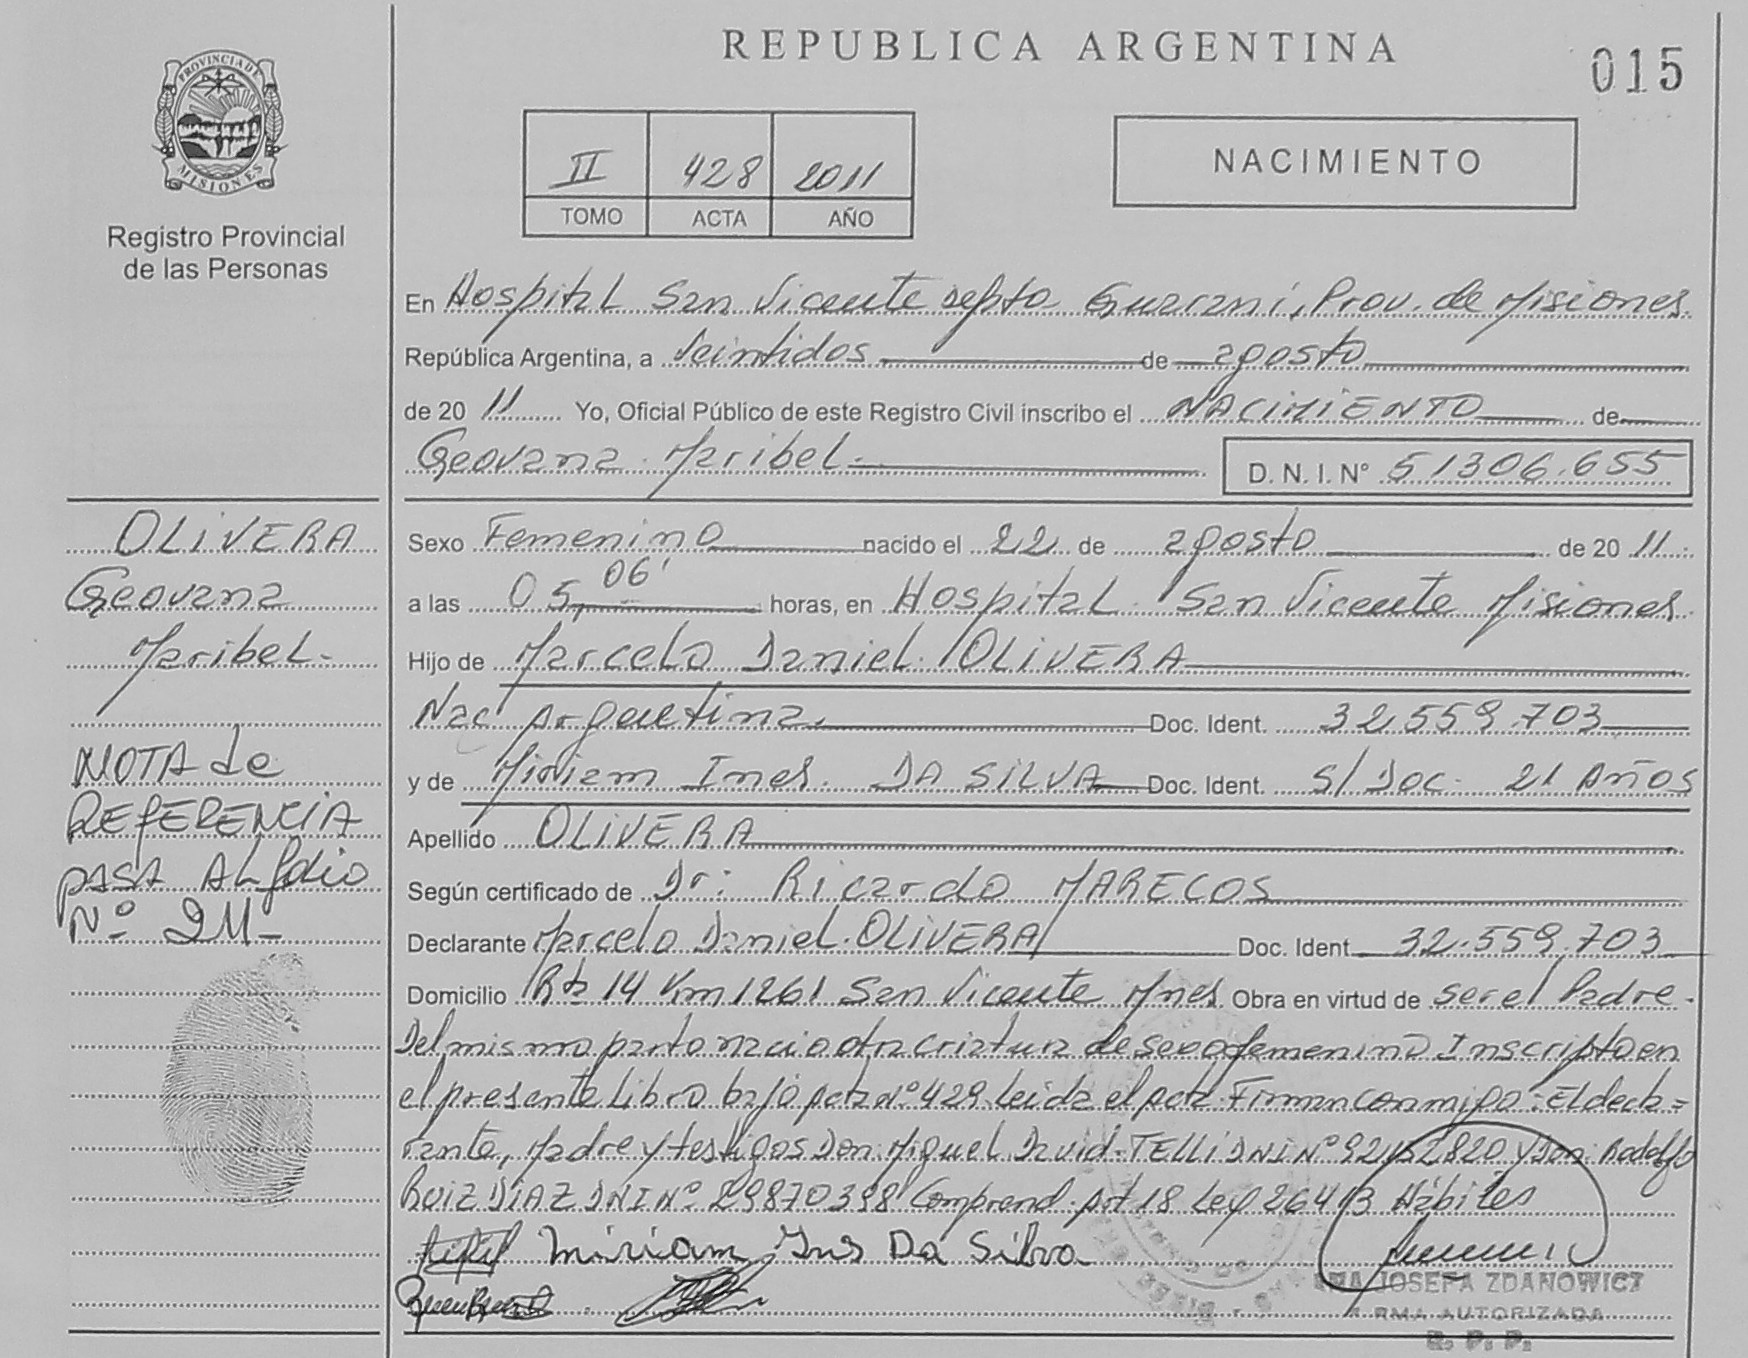 REPUBLICA ARGENTINA
015
PROVINCIA DE
MISIONES
Registro Provincial
de las Personas
II 428 2011
TOMO ACTA AÑO
NACIMIENTO
En Hospital San Vicente Depto Guarani, Prov. de Misiones.
República Argentina, a Veintidos de agosto
de 20 11 Yo, Oficial Público de este Registro Civil inscribo el NACIMIENTO de
Geovana Maribel.
D. N. I. Nº 51306.655
OLIVERA
Geovana
Maribel-
NOTA de
REFERENCIA
pasa AL folio
Nº
Sexo Femenino nacido el 22 de agosto de 20 11
a las 05, 06' horas, en Hospital San Vicente Misiones.
Hijo de Marcelo Daniel OLIVERA
Nac Argentina Doc. Ident. 32.559.703
y de Miriam Ines. DA SILVA Doc. Ident. S/Doc. 21 Años
Apellido OLIVERA
Según certificado de Dr: Ricardo MARECOS
Declarante Marcelo Daniel. OLIVERA Doc. Ident. 32.559.703
Domicilio Rta 14 Km 1261 San Vicente Mnes Obra en virtud de ser el Padre.
Del mismo parto nacio otra criatura de sexo femenino Inscripto en
el presente Libro bajo acta Nº 429. Leida el acta Firman conmigo: El decla=
rante, Madre y testigos Don: Miguel David. TELLI DNI Nº y Don: Rodolfo
RUIZ DIAZ DNI Nº 29870398 Comprend. Art 18 Ley 26413 Hábiles
Miriam Ines Da Silva
JOSEFA ZDANOWICZ
FIRMA AUTORIZADA
R. P. P.